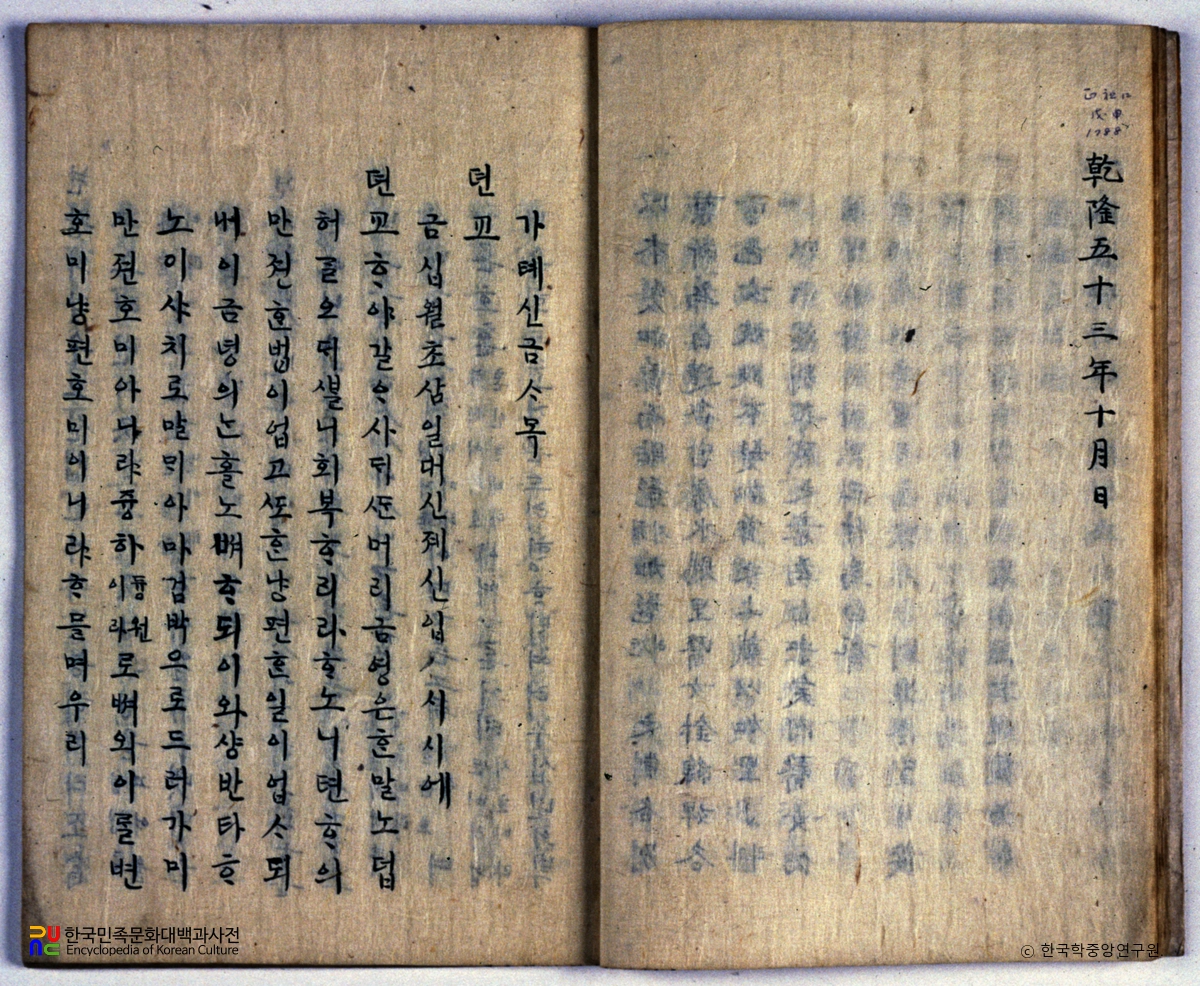 正祖12
戊申
1788
乾隆五十三年十月日
가톄신금ᄉ목
뎐교
금십월초삼일대신졔신입시시에
뎐교ᄒᆞ야갈ᄋᆞ사ᄃᆡ ᄯᅩ머리금영은ᄒᆞᆫ말노덥
허ᄅᆞᆯ오ᄃᆡ 니회복ᄒᆞ리라ᄒᆞ노니뎐ᄒᆞ의
만젼ᄒᆞᆫ법이업고ᄯᅩᄒᆞᆫ냥편ᄒᆞᆫ일이업ᄉᆞᄃᆡ
내이금녕의ᄂᆞᆫ홀노 ᄒᆞ되이와샹반타ᄒᆞ
노이샤치로말ᄆᆡ아마검박으로드러가미
만젼호미아니라즁하이듕원이라로 외이ᄅᆞᆯ변
호미냥편호미이니라ᄒᆞ믈며우리
한국민족문화대백과사전
Encyclopedia of Korean Culture
ⓒ 한국학중앙연구원